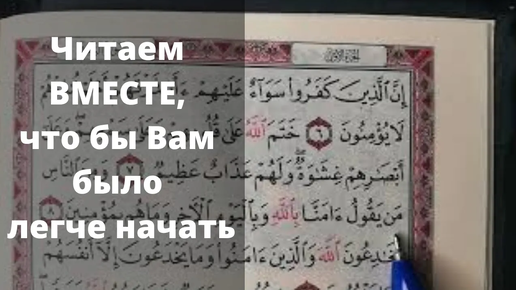 Читаем
ВМЕСТЕ,
что бы Вам
было
легче начать
إِنَّ ٱلَّذِينَ كَفَرُوا۟ سَوَآءٌ عَلَيْهِمْ
لَا يُؤْمِنُونَ ٦ خَتَمَ ٱللَّهُ عَلَىٰ
أَبْصَٰرِهِمْ غِشَٰوَةٌ وَلَهُمْ عَذَابٌ عَظِيمٌ ٧ وَمِنَ ٱلنَّاسِ
مَن يَقُولُ ءَامَنَّا بِٱللَّهِ وَبِٱلْيَوْمِ ٱلْءَاخِرِ وَمَا هُم بِمُؤْمِنِينَ ٨
يُخَٰدِعُونَ ٱللَّهَ وَٱلَّذِينَ ءَامَنُوا۟ وَمَا يَخْدَعُونَ إِلَّآ أَنفُسَهُمْ